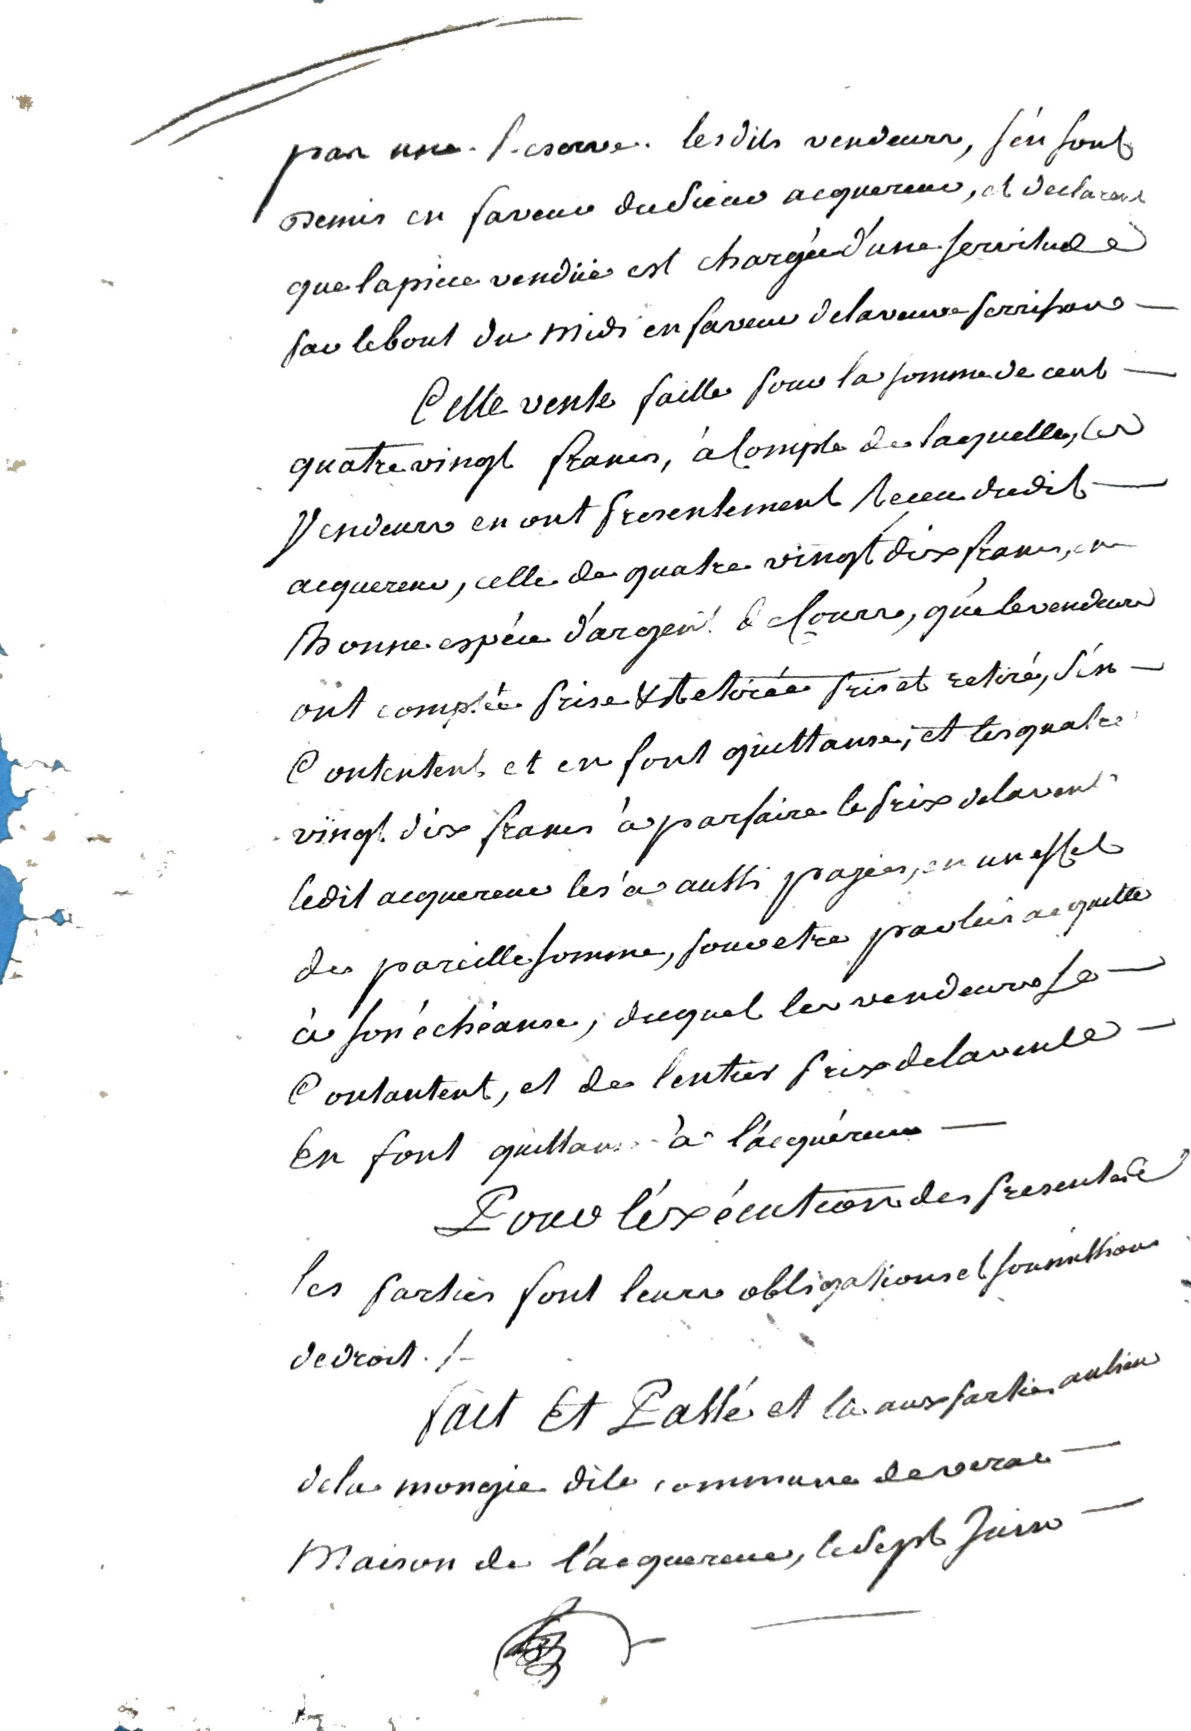 par une reserve. lesdits vendeurs, s'én sont
demis en faveur dudit sieur acquereur, et declarent
que la piece vendüe est chargée d'une servitude
sur le bout du midi en faveur de la veuve
Cette vente faitte pour la somme de cent
quatre vingt francs, à Compte de laquelle, les
Vendeurs en ont presentement receu dudit
acquereur, celle de quatre vingt dix francs, en
bonne espéce d'argent de Cours, que le vendeurs
ont comptée prise & retirée pris et retiré, s'en
Contentent et en font quittanse, et les quatre
vingt dix francs à parfaire le prix de la vente
ledit acquereur les a aussi payés, en un effet
de pareille somme, pour etre par lui acquitté
à son échéanse, duquel les vendeurs se
Contantent, et de lentier prix de la vente
En font quittanse à l'acquéreur
Pour l'éxécution des presentes
les parties font leurs obligations et soumissions
de droit. /-
fait Et Passé et lu aux parties au lieu
de la mongie dite commune de verac
Maison de l'acquereur, le sept Juin